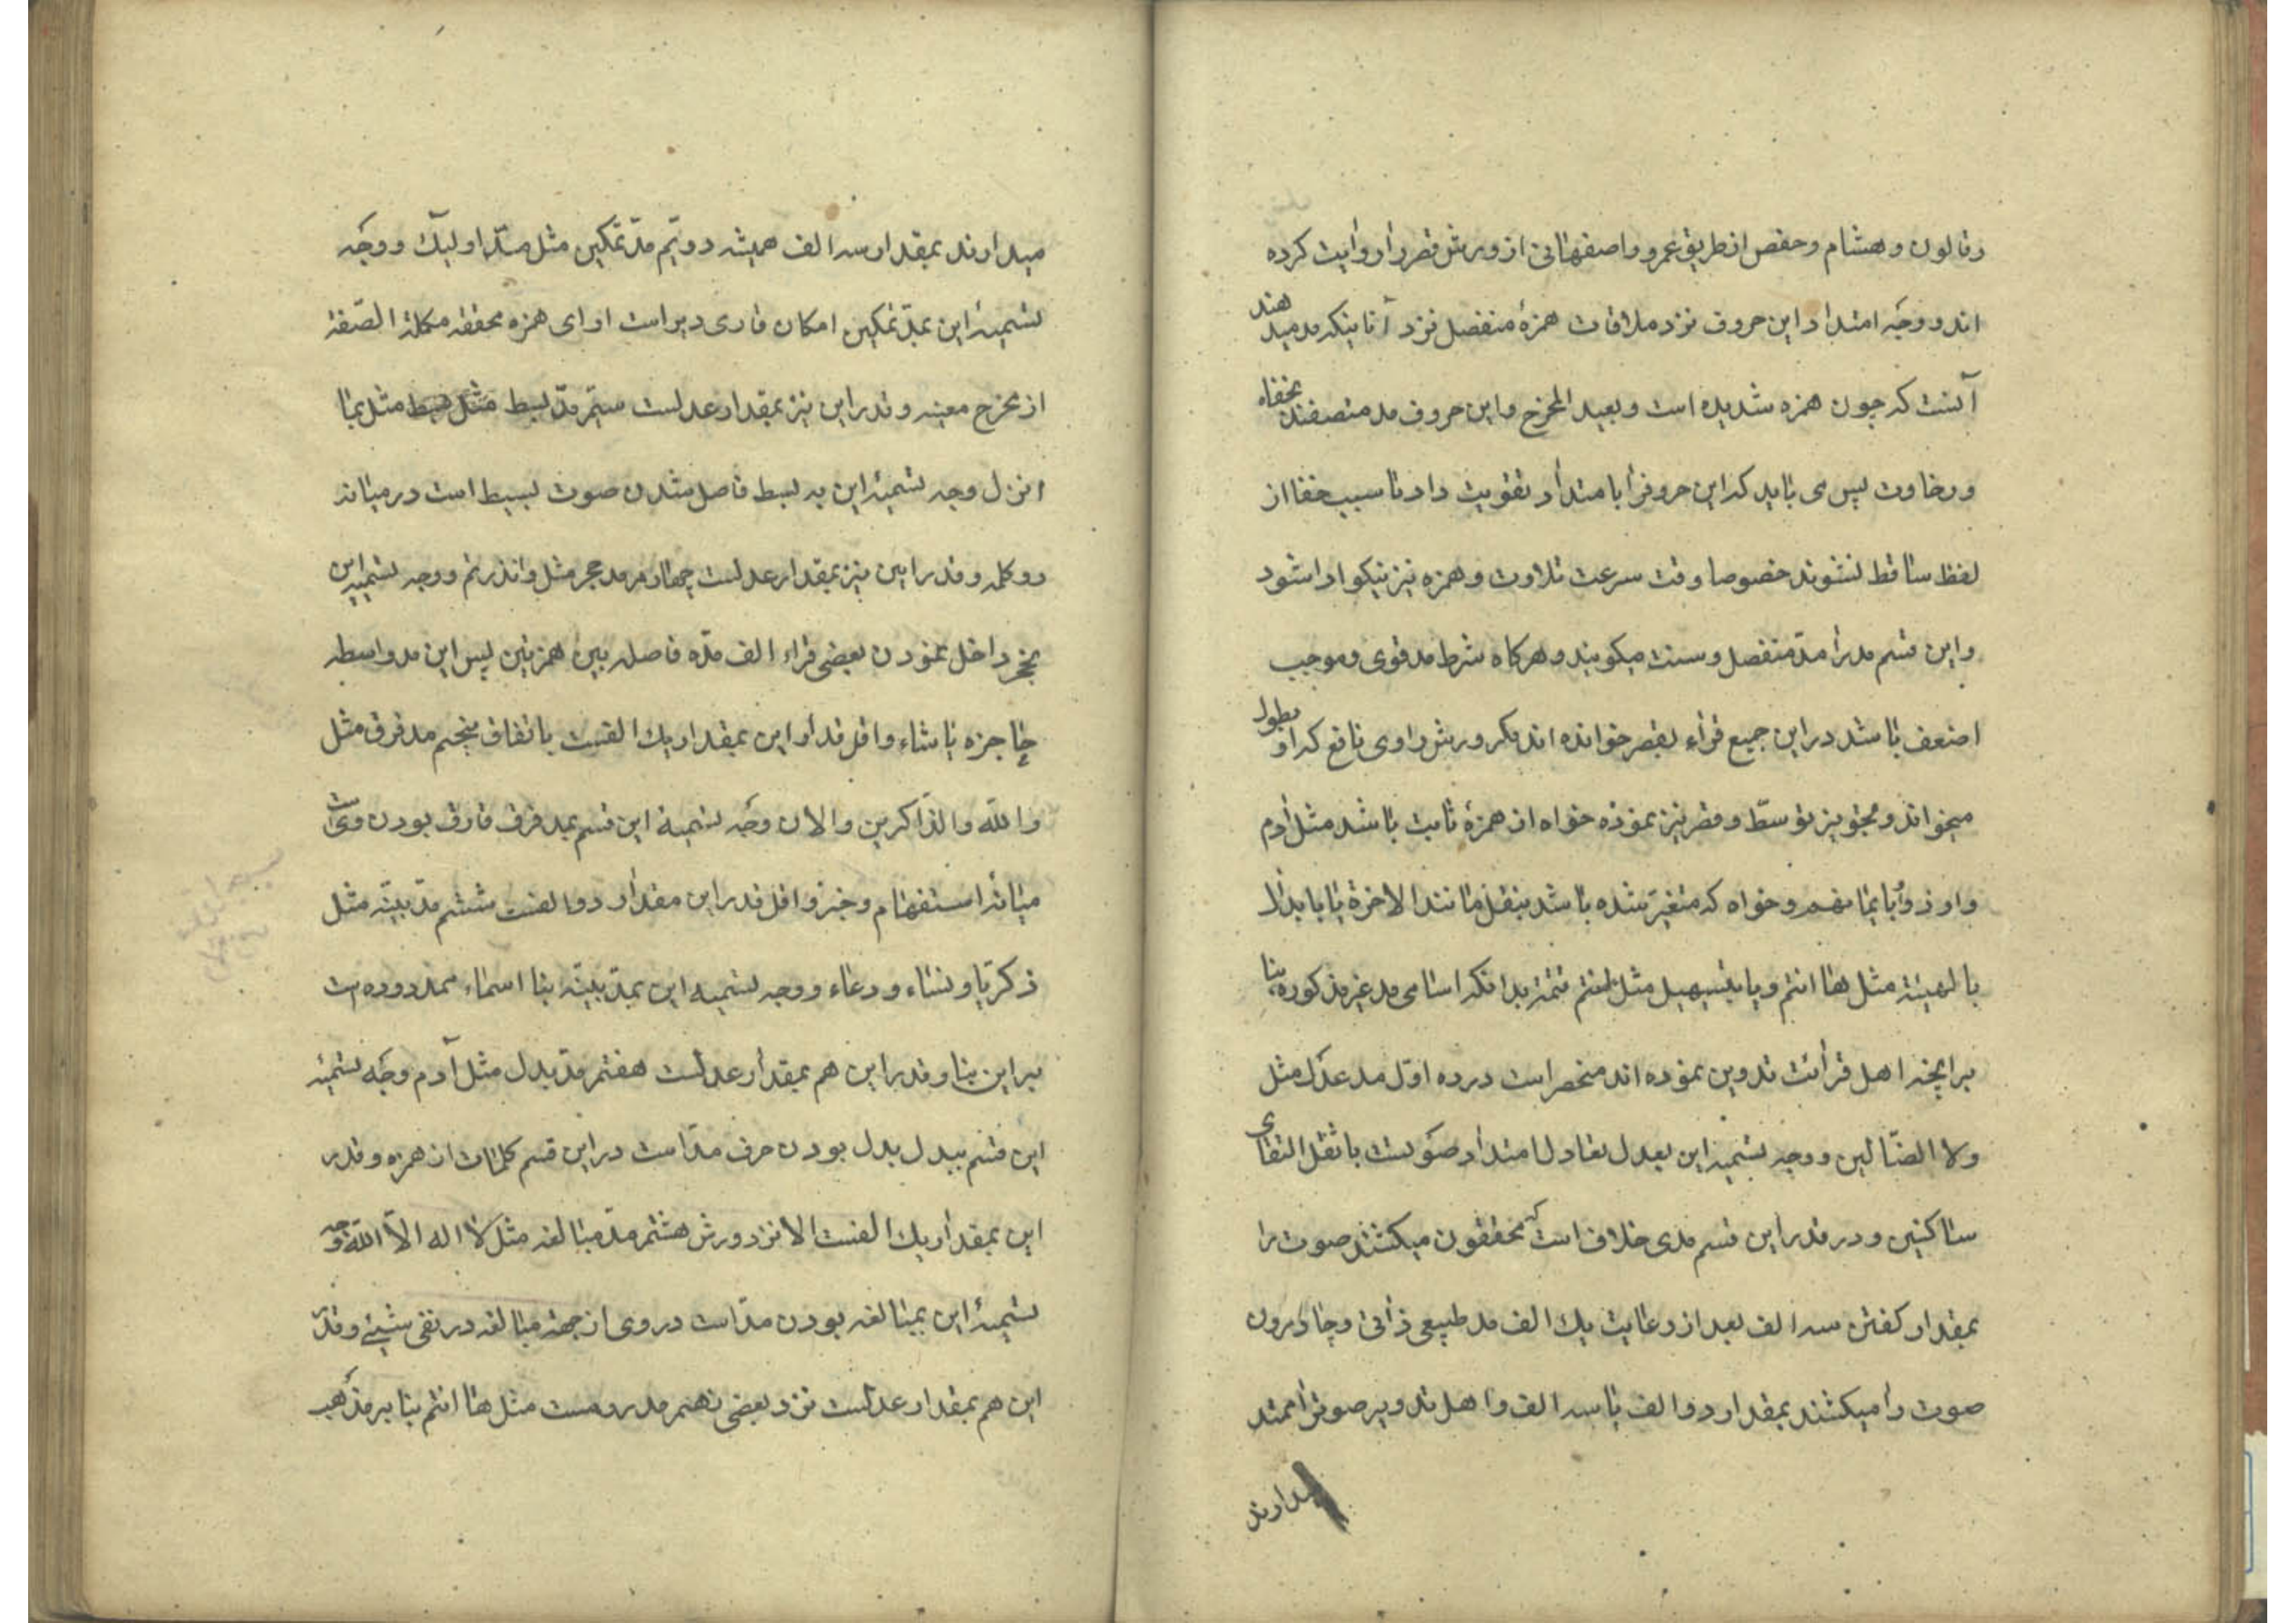 وقالون و هشام و حفص از طریق عمرو و اصفهانی از ورش قصر را روایت کرده
اند و وجه امتداد این حروف نزد ملاقات همزهٔ منفصل نزد آنانیکه مد میدهند
آنست که چون همزه شدیده است و بعید المخرج و این حروف مد متصفند بخفاء
و رخاوت پس می باید که این حروفرا بامتداد تقویت داد تا سبب خفا از
لفظ ساقط نشوند خصوصا وقت سرعت تلاوت و همزه نیز نیکو ادا شود
و این قسم مد را مدّ منفصل و سنت میکویند و هرکاه شرط مد قوی و موجب
اضعف باشد در این جمیع قراء بقصر خوانده اند مکر ورش راوی نافع که او بطول
میخواند و تجویز توسّط و قصر نیز نموده خواه از همزهٔ ثابت باشد مثل آدم
و اوذوا بایمانهم و خواه که متغیر شده باشد بنقل مانند الاخرة یا بابدال
یا لهیئة مثل هاانتم و یا بتسهیل مثل انتم تتمة بدانکه اسامی مد غیر مذکوره بنا
برانچه اهل قرائت تدوین نموده اند منحصر است در ده اوّل مد عدل مثل
ولا الضّالین و وجه تسمیه این بعدل تعادل امتداد صوتست با ثقل التقای
ساکنین و در قدر این قسم مدی خلاف است که محققون میکشند صوت را
بمقدار کفتن سه الف بعد از رعایت یك الف مد طبیعی ذاتی و حادرون
صوت را میکشند بمقدار دو الف یا سه الف و اهل تدویر صوترا ممتد
میدارند
میدارند بمقدار سه الف همیشه دویّم مدّ تمکین مثل اولئك و وجه
تسمیهٔ این بمدّ تمکین امکان قاری دیر است اوای همزه محققه مکملة الصّفة
از مخرج معینه و قدر این نیز بمقدار عدلست سیّم مدّ بسط مثل بسط مثل بما
انزل وجه تسمیهٔ این به بسط فاصل شدن صوت بسیط است در میانه
دو کلمه و قدر این نیز بمقدار عدلست چهارم مد حجر مثل ءانذرتهم و وجه تسمیه این
بحجر داخل نمودن بعضی قراء الف مدّه فاصله بین همزتین پس این مد واسطه
حاجزه باشد و اقل قدر این بمقدار یك الفست باتفاق پنجم مد فرق مثل
ءالله و الذاکرین و الان وجه تسمیة این قسم بمد فرق فارق بودن ویست
میانهٔ استفهام و خبر و اقل قدر این مقدار دو الفست ششم مدّ بنیّه مثل
ذکریّا و نساء و دعاء و وجه تسمیه این بمدّ بنیّه بنا اسماء ممدوده است
بر این بنا و قدر این هم بمقدار عدلست هفتم مدّ بدل مثل آدم وجه تسمیه
این قسم ببدل بدل بودن حرف مدّ است در این قسم کلمات از همزه و قدر
این بمقدار یك الفست الا نزد ورش هشتم مدّ مبالغه مثل لا اله الّا الله وجه
تسمیهٔ این بمبالغه بودن مدّ است در وی از جهة مبالغه در نفی شیئ و قدر
این هم بمقدار عدلست نزد بعضی نهم مد مثل هاانتم بنا بر مذهب